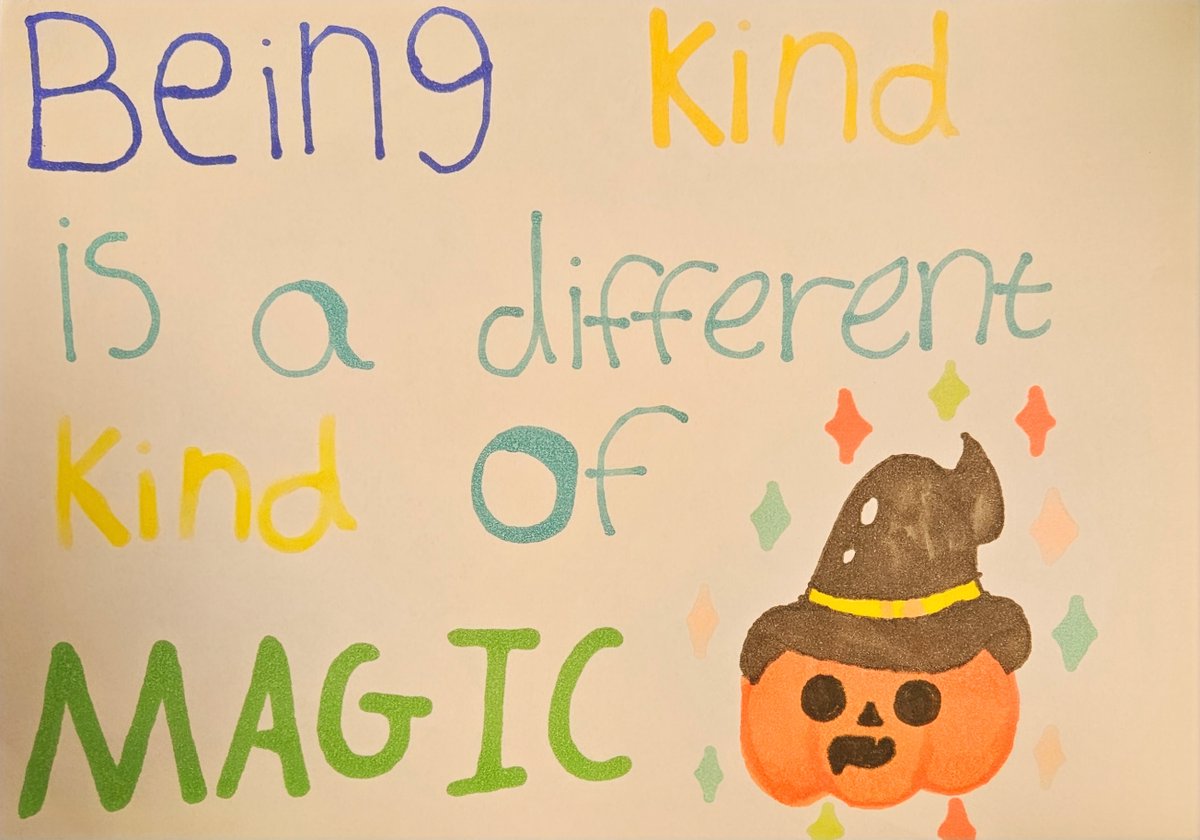 Being kind
is a different
kind of
MAGIC